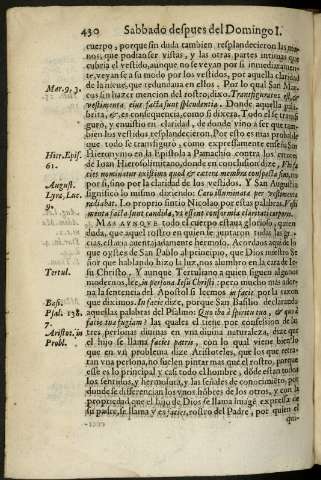 430 Sabbado despues del Domingo I.
cuerpo, porque sin duda tambien resplandecieron las manos,
que podian ser vistas, y las otras partes intimas que
cubria el vestido, aunque no se veyan por si inmediatamente,
veyanse a su modo por los vestidos, por aquella claridad
de la nieve, que redundaua en ellos. Por lo qual San Marcus
Mar. 9, 3.
sin hazer mencion del rostro, dixo. Transfiguratus est, &
vestimenta eius facta sunt splendentia. Donde aquella palabrita,
&, es consequencia, como si dixera. Todo el se transfiguró,
y enuistio en claridad, de donde vino a ser que tambien
los vestidos resplandecieron. Por esto es mas probable
que todo se transfiguró, como expressamente enseña San
Hieronymo en la Epistola a Pamachio contra los errores
Hier. Epis. 61.
de Ioan Hierosolimitano, donde en conclusion dize,
por si, sino por la claridad de los vestidos. Y San Augustin
August.
significó lo mismo diziendo: Caro illuminata per vestimenta
Lyra, Luc. 9.
radiabat. Lo proprio sintio Nicolao, por estas palabras.
menta facta sunt candida, vt essent conformia claritati corporis.
MAS AVNQVE todo el cuerpo estaua glorioso, quien
duda, que aquel rostro en quien se juntaron todas las gracias,
estaria auentajadamente hermoso, Acordaos aqui de lo
que oystes de San Pablo al principio, que Dios nuestro Señor
que hablando hizo la luz, nos alumbro en la cara de Iesu
Christo, Y aunque Tertuliano a quien siguen algunos
Tertul.
modernos, lee, in persona Iesu Christi: pero mucho mas adorna
la sentencia del Apostol si leemos in facie por la razon
que diximos. In facie dize, porque San Basilio declarando
Basi.
aquellas palabras del Psalmo: Quo ibo a spiritu tuo, & quo a
Psal. 138. 7.
facie tua fugiam? las quales el tiene por confession de las
tres personas diuinas en vna diuina naturaleza, dize que
Aristot. in Probl.
el hijo se llama facies patris, con lo qual viene bien lo
que en vn problema dize Aristoteles, que los que retratan
vna persona, no suelen pintar mas que el rostro, porque
esse es lo principal y casi todo el hombre, dode estan todos
los sentidos, y hermosura, y las señales de conocimiéto, por
donde se diferencian los vnos hóbres de los otros, y con la
propriedad que el hijo de Dios se llama imagé expressa de
su padre, se llama y es facies, rostro del Padre, por quien el
qui-